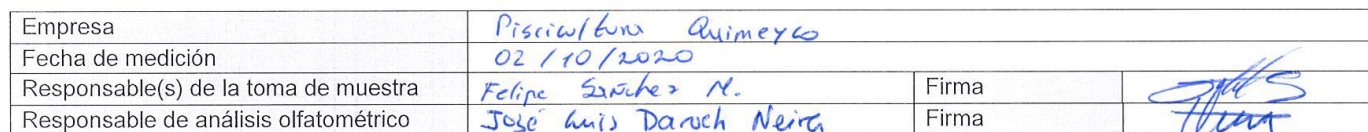 Empresa Piscicultura Quimeyco
Fecha de medición 02/10/2020
Responsable(s) de la toma de muestra Felipe Sánchez M. Firma
Responsable de análisis olfatométrico José Luis Daroch Neira Firma